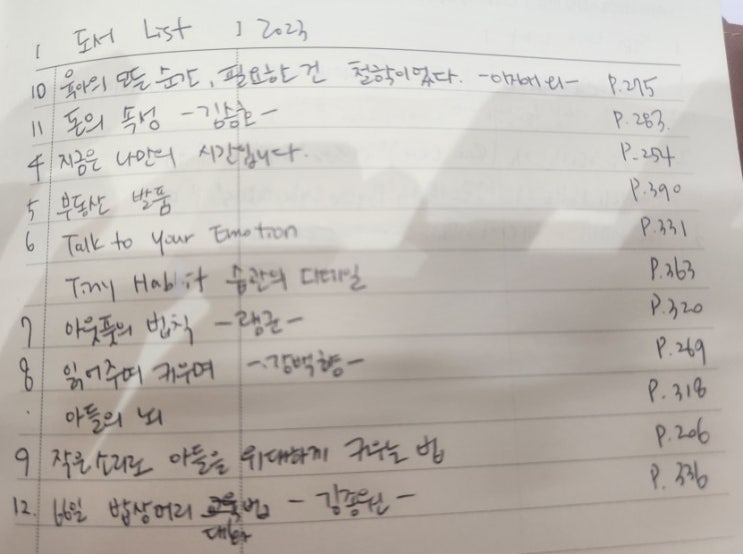 1 도서 List 2023
10 육아의 모든 순간, 필요한 건 철학이었다. -이서- P.275
11 돈의 속성 -김승호- P.283
4 지금은 나만의 시간입니다. P.254
5 부동산 발품 P.390
6 Talk to Your Emotion P.331
Tiny Habit 습관의 디테일 P.363
7 아웃풋의 법칙 -렘군- P.320
8 읽어주며 키우며 -강백향- P.269
아들의 뇌 P.318
9 작은소리로 아들을 위대하게 키우는 법 P.206
12. 66일 밥상머리 법 -김종원- P.336
대화